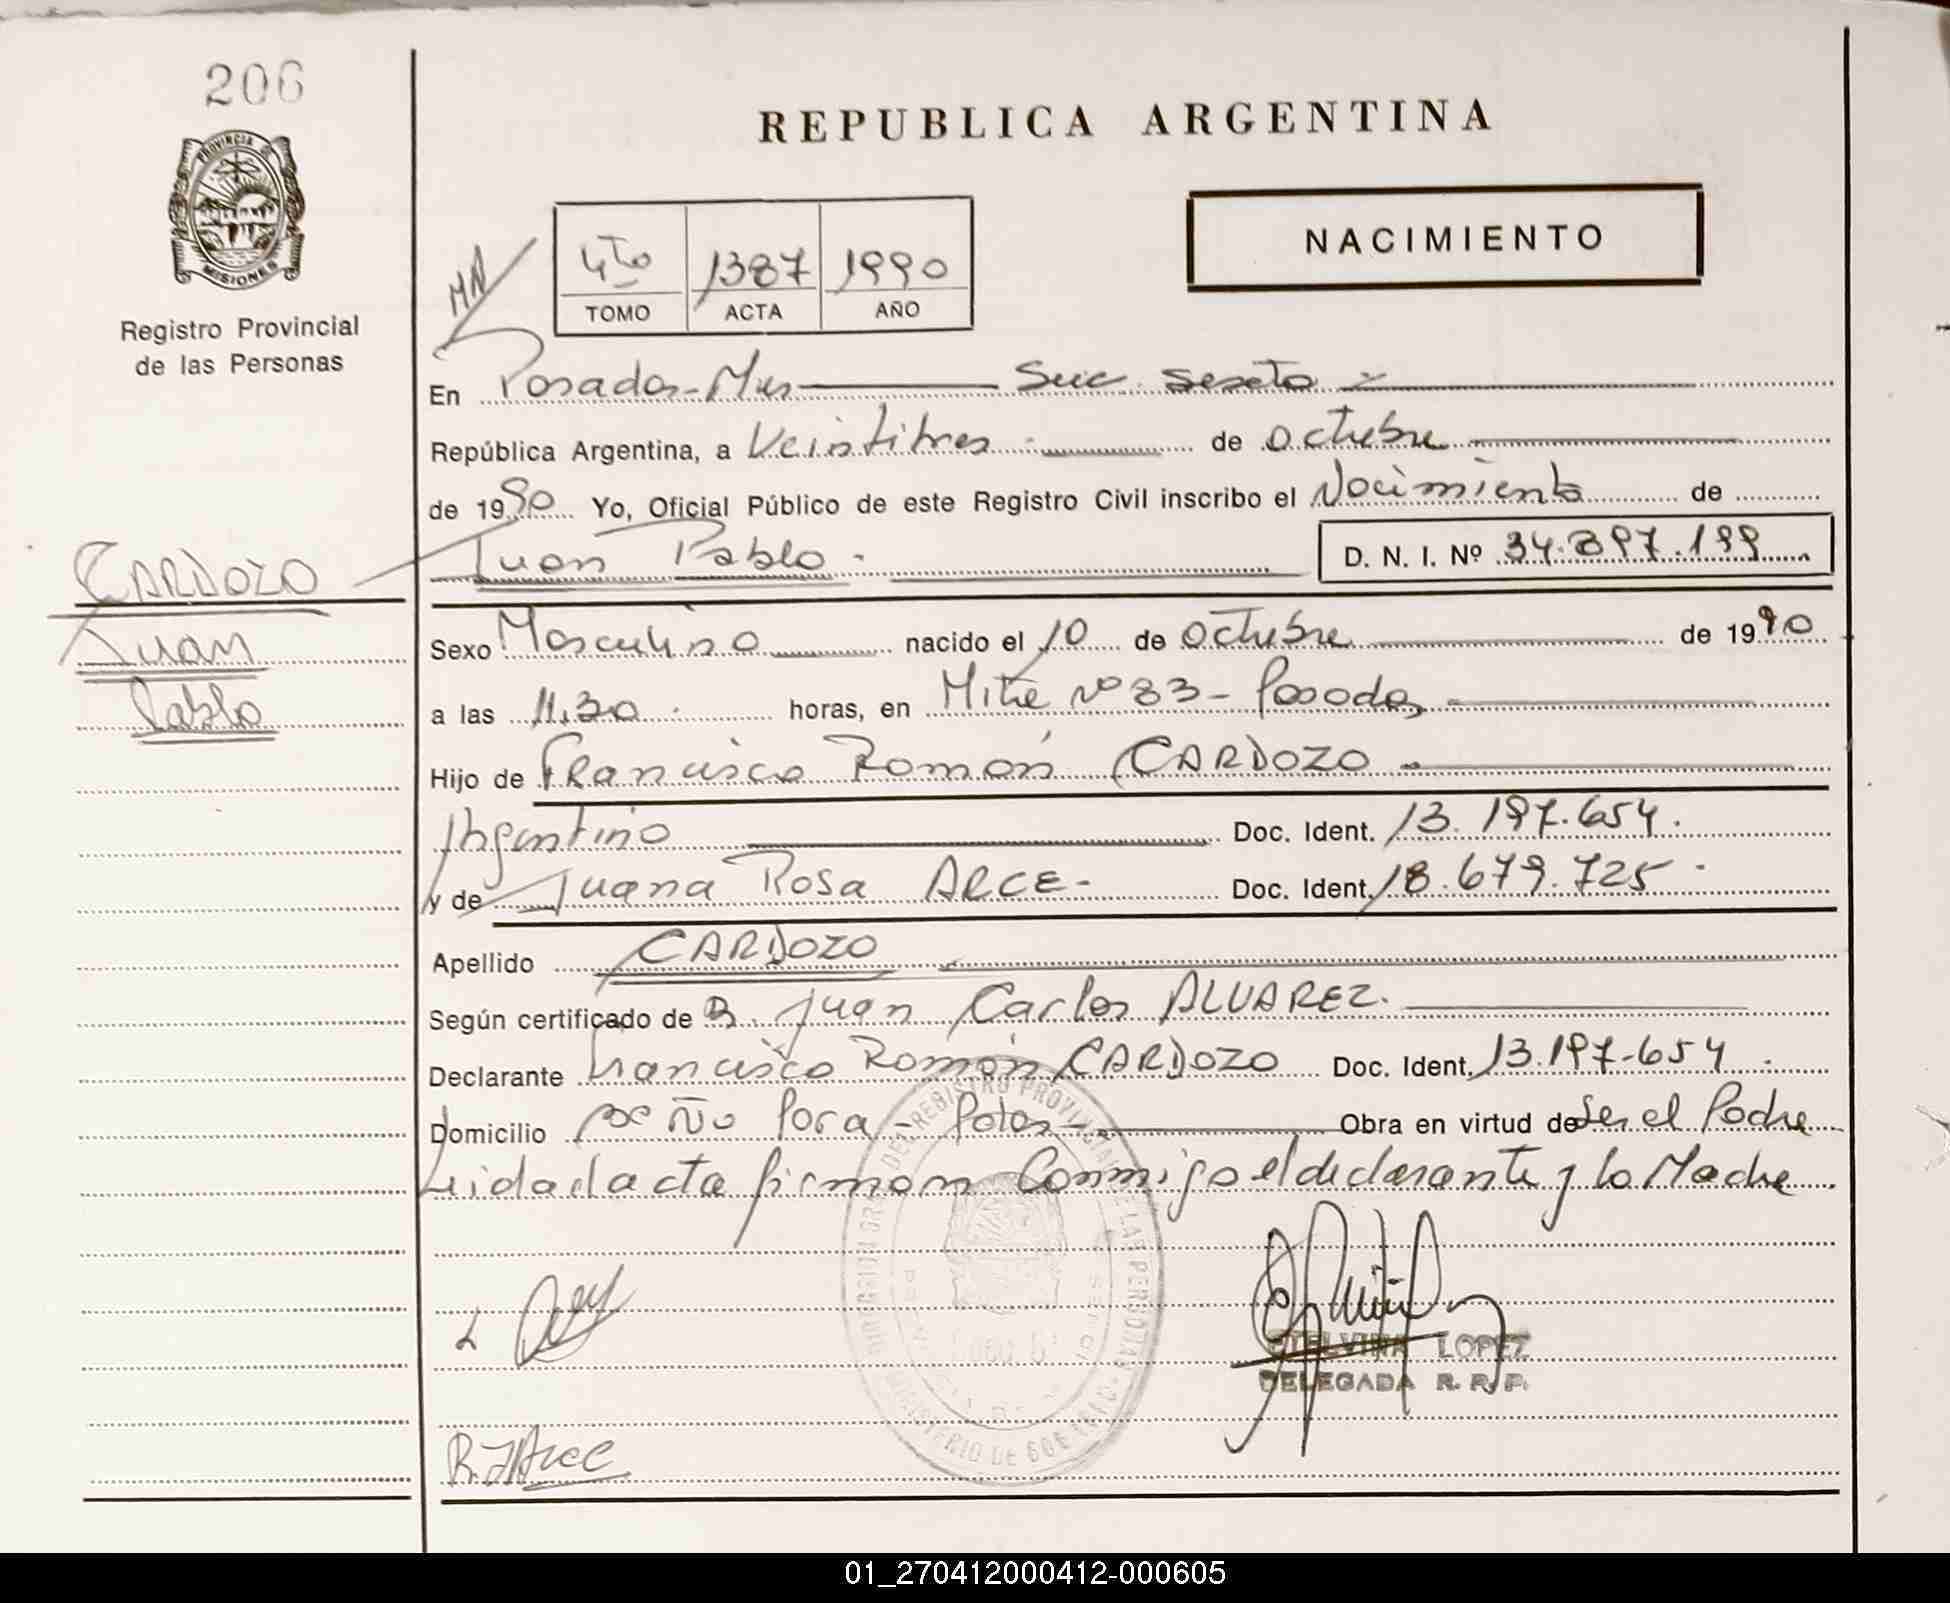 206
PROVINCIA DE
MISIONES
Registro Provincial
de las Personas
REPUBLICA ARGENTINA
NACIMIENTO
4to 1387 1990
TOMO ACTA AÑO
En Posadas-Mnes Secc. Sexta
República Argentina, a Veintitres de octubre
de 1990 Yo, Oficial Público de este Registro Civil inscribo el Nacimiento de
Juan Pablo. D. N. I. Nº 34.897.199
CARDOZO
Juan
Pablo
Sexo Masculino nacido el 10 de octubre de 1990
a las 11.30 horas, en Mitre Nº 83- Posadas
Hijo de Francisco Román CARDOZO
Argentino Doc. Ident. 13.197.654.
y de Juana Rosa ARCE- Doc. Ident. 18.679.725
Apellido CARDOZO
Según certificado de Juan Carlos ALVAREZ.
Declarante Francisco Román CARDOZO Doc. Ident. 13.197.654
Domicilio Obra en virtud de Ser el Padre
Leida el acta firman Conmigo el declarante y la Madre
OTELVINA LOPEZ
DELEGADA R. R. P.
R. J Arce
01_270412000412-000605